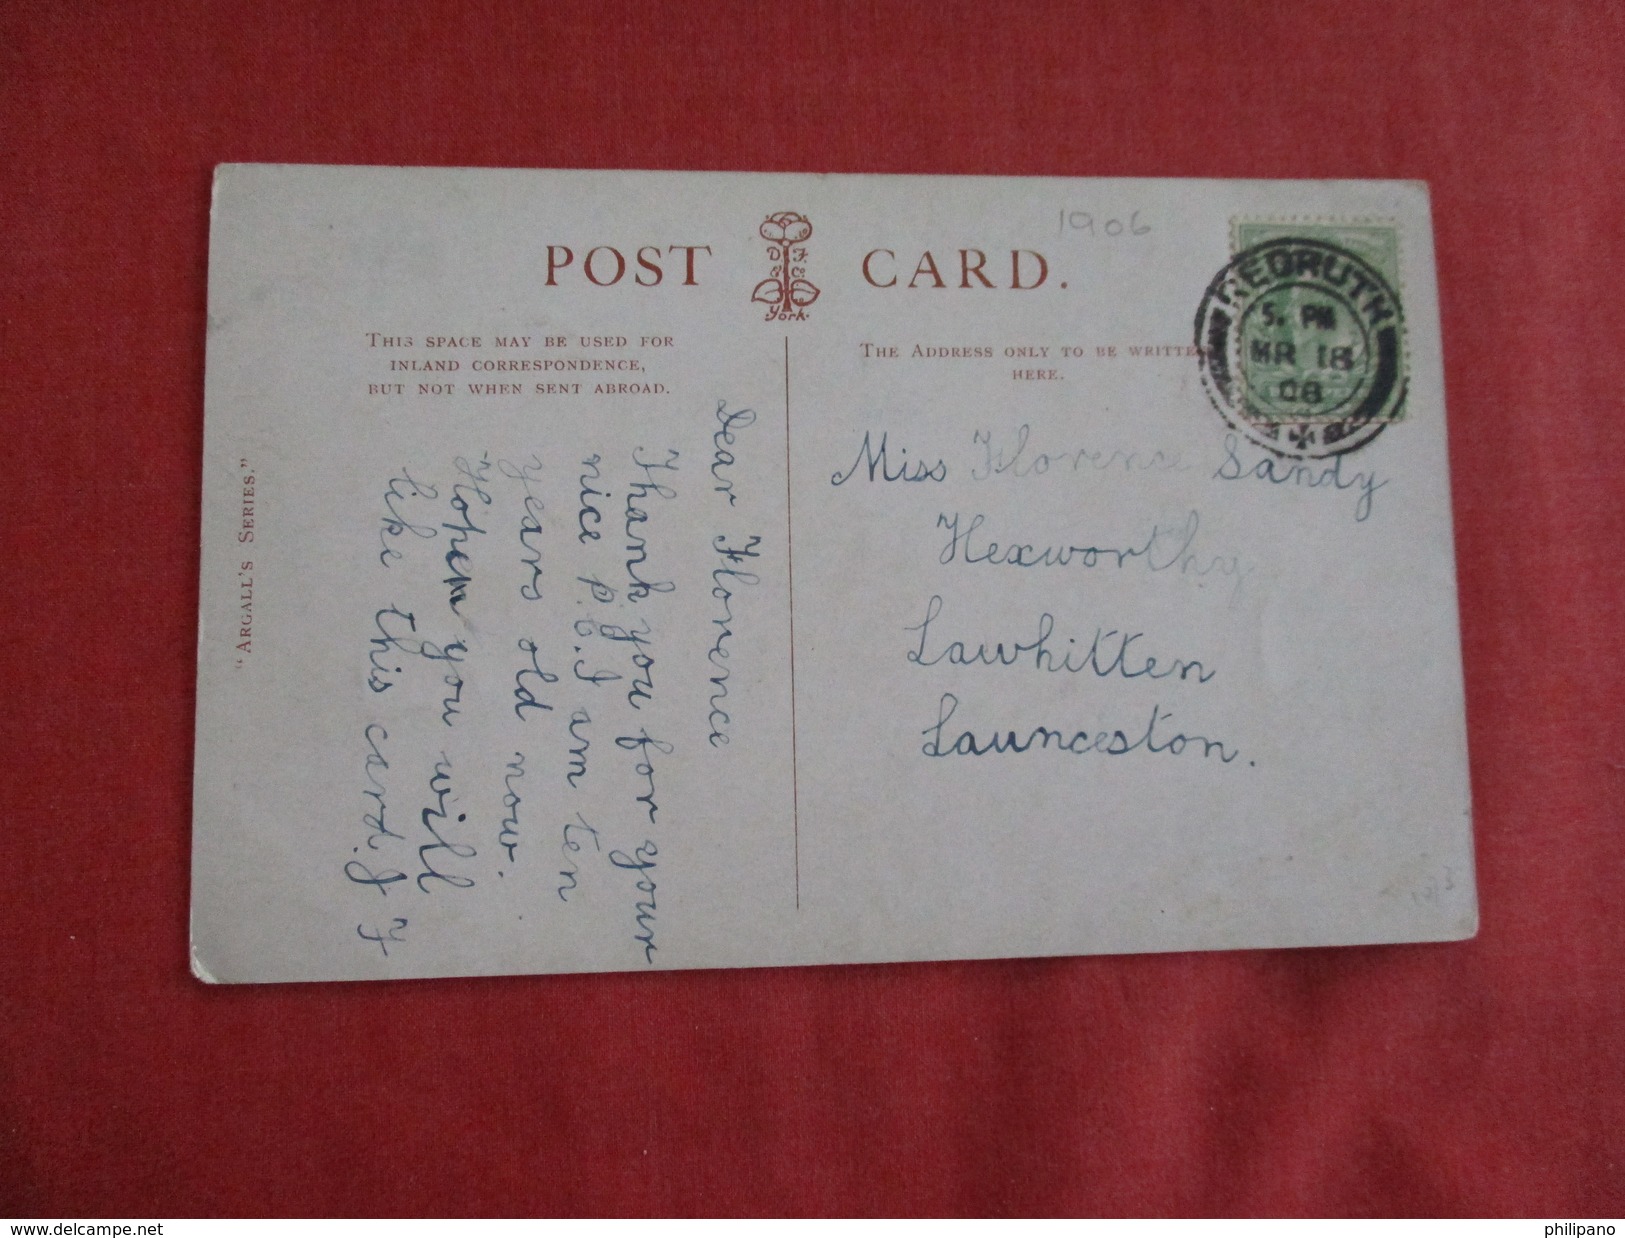 POST CARD.
D. F.
& Co.
York.
1906
REDRUTH
5. PM
MR 18
08
THIS SPACE MAY BE USED FOR
INLAND CORRESPONDENCE,
BUT NOT WHEN SENT ABROAD.
THE ADDRESS ONLY TO BE WRITTE
HERE.
"ARGALL'S SERIES."
Dear Florence
Thank you for your
nice p.c. I am ten
years old now.
Hopeing you will
like this card. J F
Miss Florence Sandy
Hexworthy
Lawhitten
Launceston.
www.delcampe.net
philipano